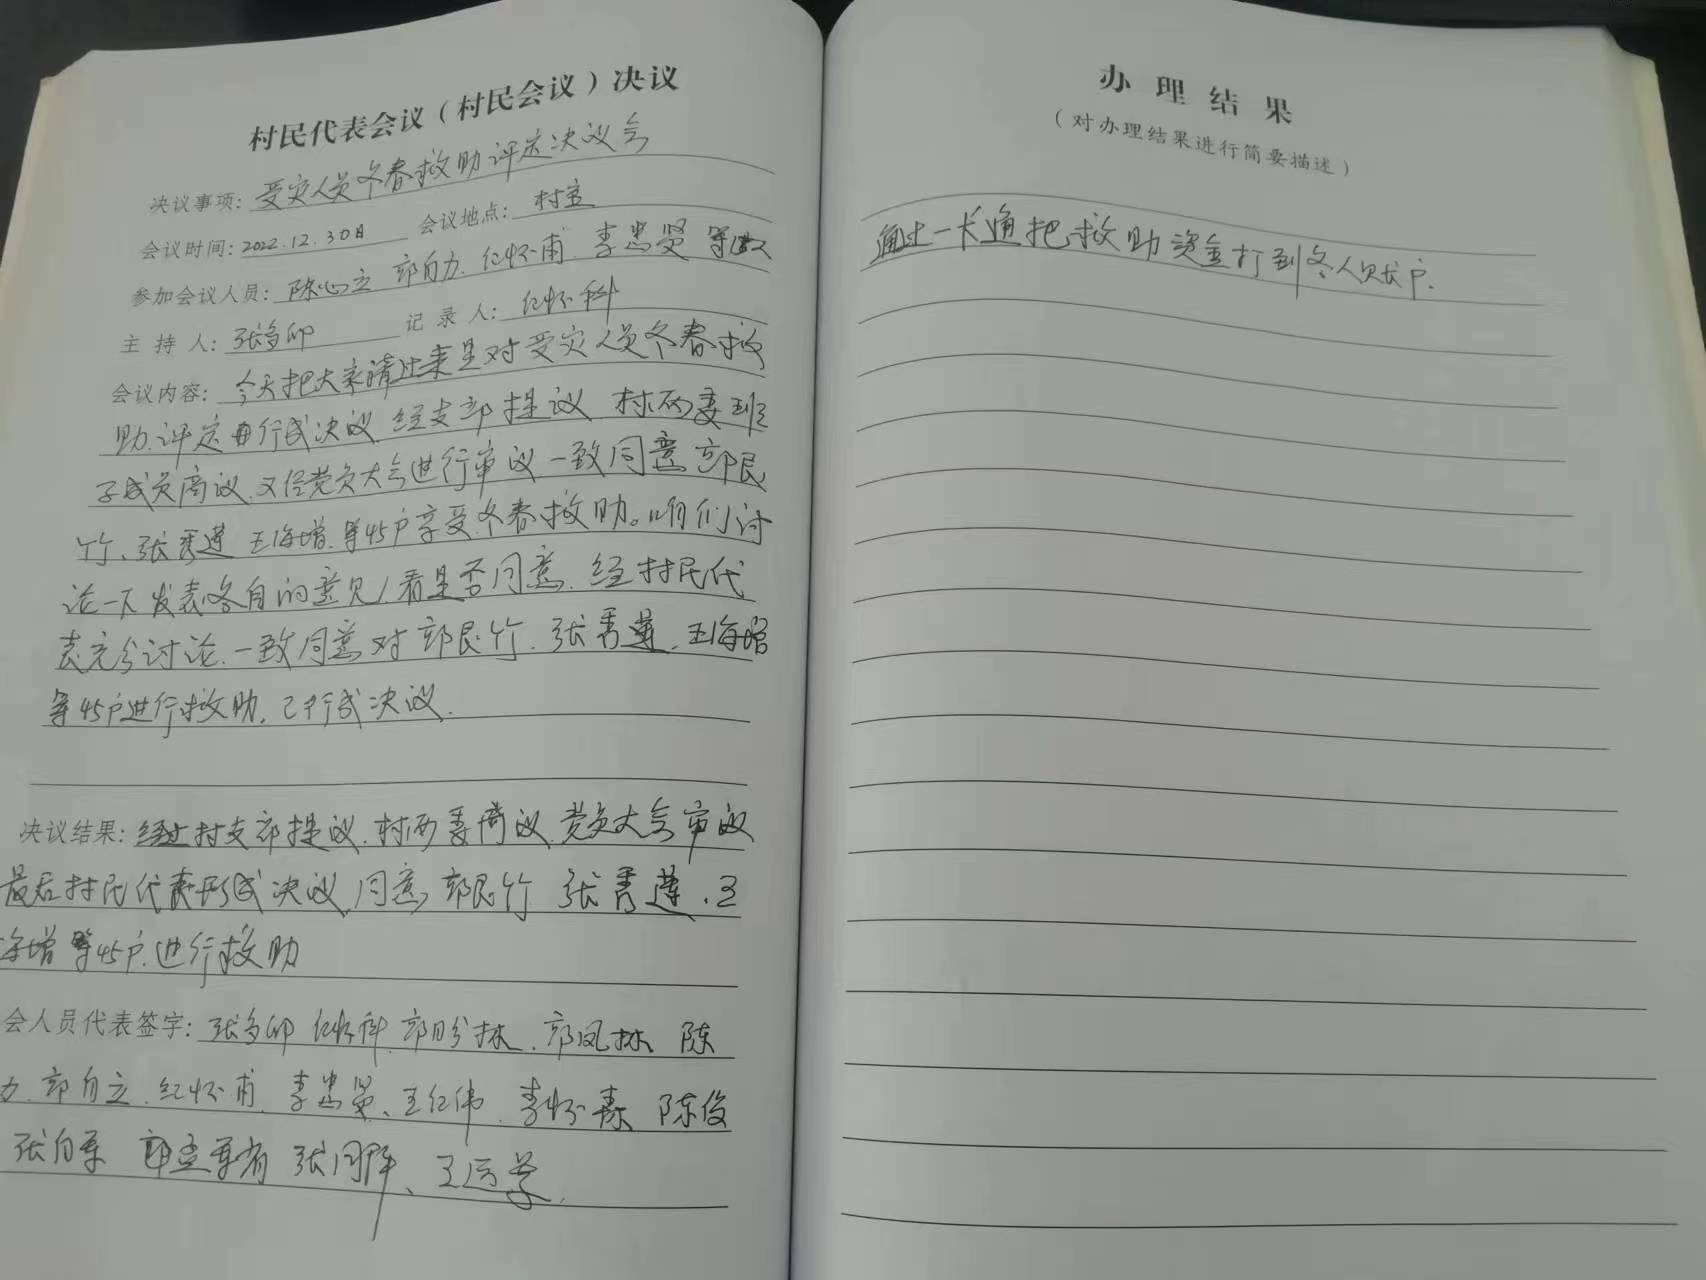 村民代表会议（村民会议）决议
决议事项：受灾人员冬春救助评定决议会
会议时间：2022.12.30日 会议地点：村室
参加会议人员：陈心立 郭自力、纪怀甫、李忠贤 等
主持人：张多卯 记录人：纪怀科
会议内容：今天把大家请过来是对受灾人员冬春救
助、评定、行成决议、经支部提议 村两委班
子成员商议、又经党员大会进行审议一致同意 郭民
竹、张秀莲 王海增、等45户享受冬春救助。咱们讨
论一下 发表各自的意见，看是否同意、经村民代
表充分讨论、一致同意对郭民竹、张秀莲、王海增
等45户进行救助，已行成决议.
决议结果：经过村支部提议、村两委商议、党员大会审议
最后村民代表形成决议，同意 郭民竹 张秀莲、王
海增等45户、进行救助
会人员代表签字：张多卯 纪怀科、郭盼林、郭凤林 陈
力、郭自立、纪怀甫、李忠贤、王红伟、李怀森 陈俊
张自军 郭 张同群、王运学.
办理结果
（对办理结果进行简要描述）
通过一卡通把救助资金打到各人账户.